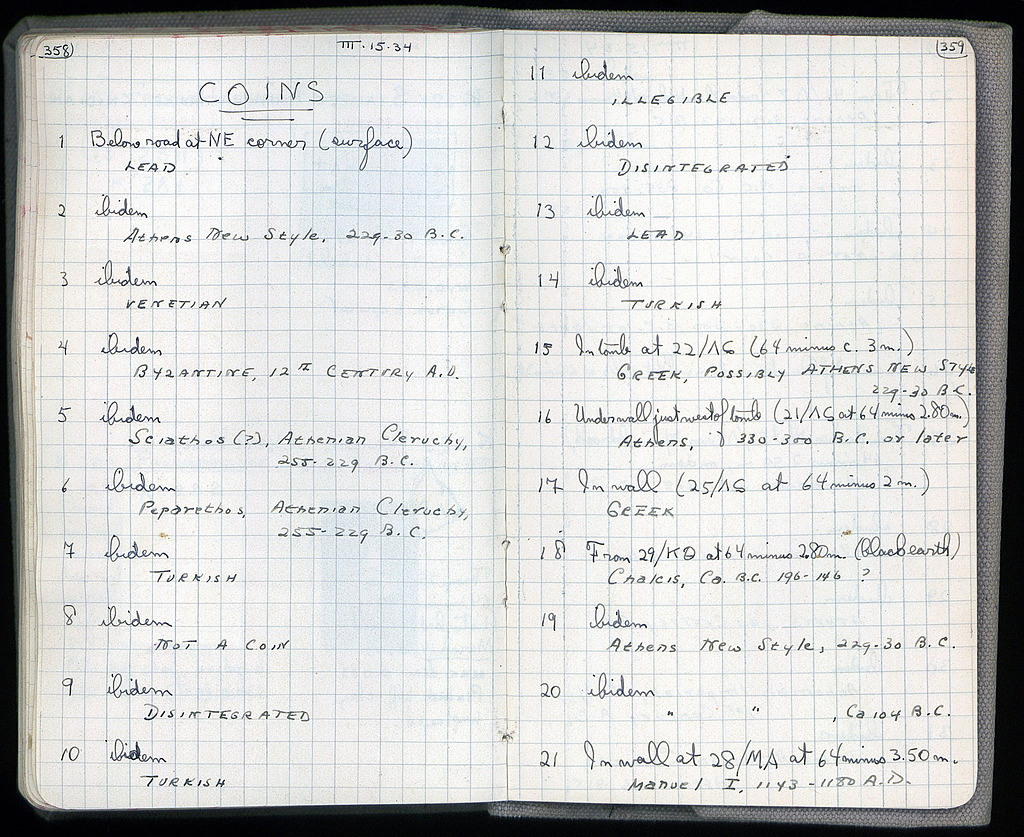 358
III.15.34
COINS
1 Below road at NE corner (surface)
LEAD
2 ibidem
Athens New Style, 229-30 B.C.
3 ibidem
VENETIAN
4 ibidem
BYZANTINE, 12th CENTURY A.D.
5 ibidem
Sciathos (?), Athenian Cleruchy,
255-229 B.C.
6 ibidem
Peparethos, Athenian Cleruchy,
255-229 B.C.
7 ibidem
TURKISH
8 ibidem
NOT A COIN
9 ibidem
DISINTEGRATED
10 ibidem
TURKISH
359
11 ibidem
ILLEGIBLE
12 ibidem
DISINTEGRATED
13 ibidem
LEAD
14 ibidem
TURKISH
15 In tomb at 22/ΛΣ (64 minus c. 3 m.)
GREEK, POSSIBLY ATHENS NEW STYLE
229-30 B.C.
16 Under wall just west of tomb (21/ΛΣ at 64 minus 2.80 m.)
Athens, 330-300 B.C. or later
17 In wall (25/ΛΣ at 64 minus 2 m.)
GREEK
18 From 29/ΚΘ at 64 minus 2.80m. (black earth)
Chalcis, Ca. B.C. 196-146 ?
19 ibidem
Athens New Style, 229-30 B.C.
20 ibidem
" " , Ca 104 B.C.
21 In wall at 28/ΜΑ at 64 minus 3.50 m.
Manuel I, 1143-1180 A.D.